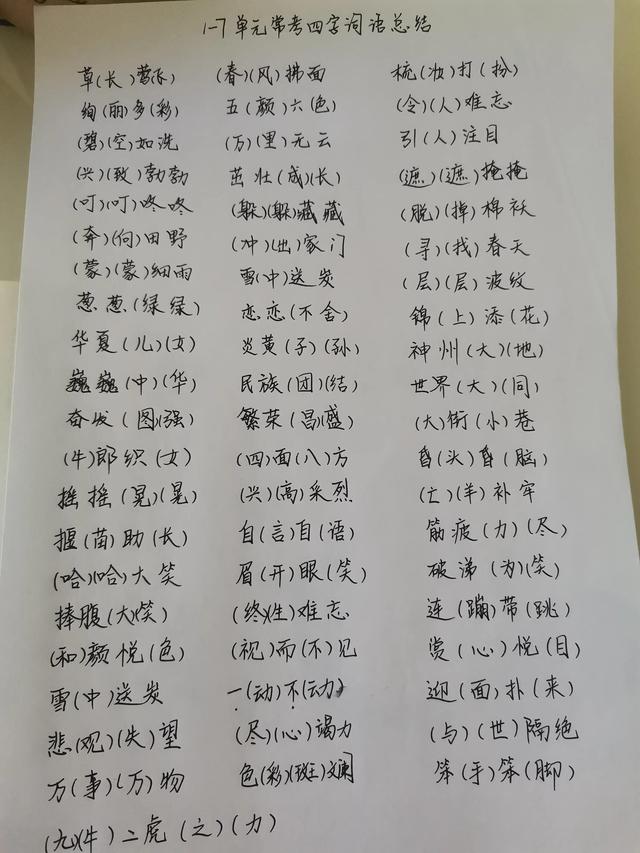 1-7单元常考四字词语总结
草(长)莺飞 (春)(风)拂面 梳(妆)打(扮)
绚(丽)多(彩) 五(颜)六(色) (令)(人)难忘
(碧)(空)如洗 (万)(里)无云 引(人)注目
(兴)(致)勃勃 茁壮(成)(长) (遮)(遮)掩掩
(叮)(叮)咚咚 (躲)(躲)藏藏 (脱)(掉)棉袄
(奔)(向)田野 (冲)(出)家门 (寻)(找)春天
(蒙)(蒙)细雨 雪(中)送炭 (层)(层)波纹
葱葱(绿绿) 恋恋(不舍) 锦(上)添(花)
华夏(儿)(女) 炎黄(子)(孙) 神州(大)(地)
巍巍(中)(华) 民族(团)(结) 世界(大)(同)
奋发(图)(强) 繁荣(昌)(盛) (大)街(小)巷
(牛)郎织(女) (四)面(八)方 昏(头)昏(脑)
摇摇(晃)(晃) (兴)(高)采烈 (亡)(羊)补牢
揠(苗)助(长) 自(言)自(语) 筋疲(力)(尽)
(哈)(哈)大笑 眉(开)眼(笑) 破涕(为)(笑)
捧腹(大)(笑) (终)(生)难忘 连(蹦)带(跳)
(和)颜悦(色) (视)而(不)见 赏(心)悦(目)
雪(中)送炭 一(动)不(动) 迎(面)扑(来)
悲(观)(失)望 (尽)(心)竭力 (与)(世)隔绝
万(事)(万)物 色(彩)(斑)斓 笨(手)笨(脚)
(九)(牛)二虎(之)(力)